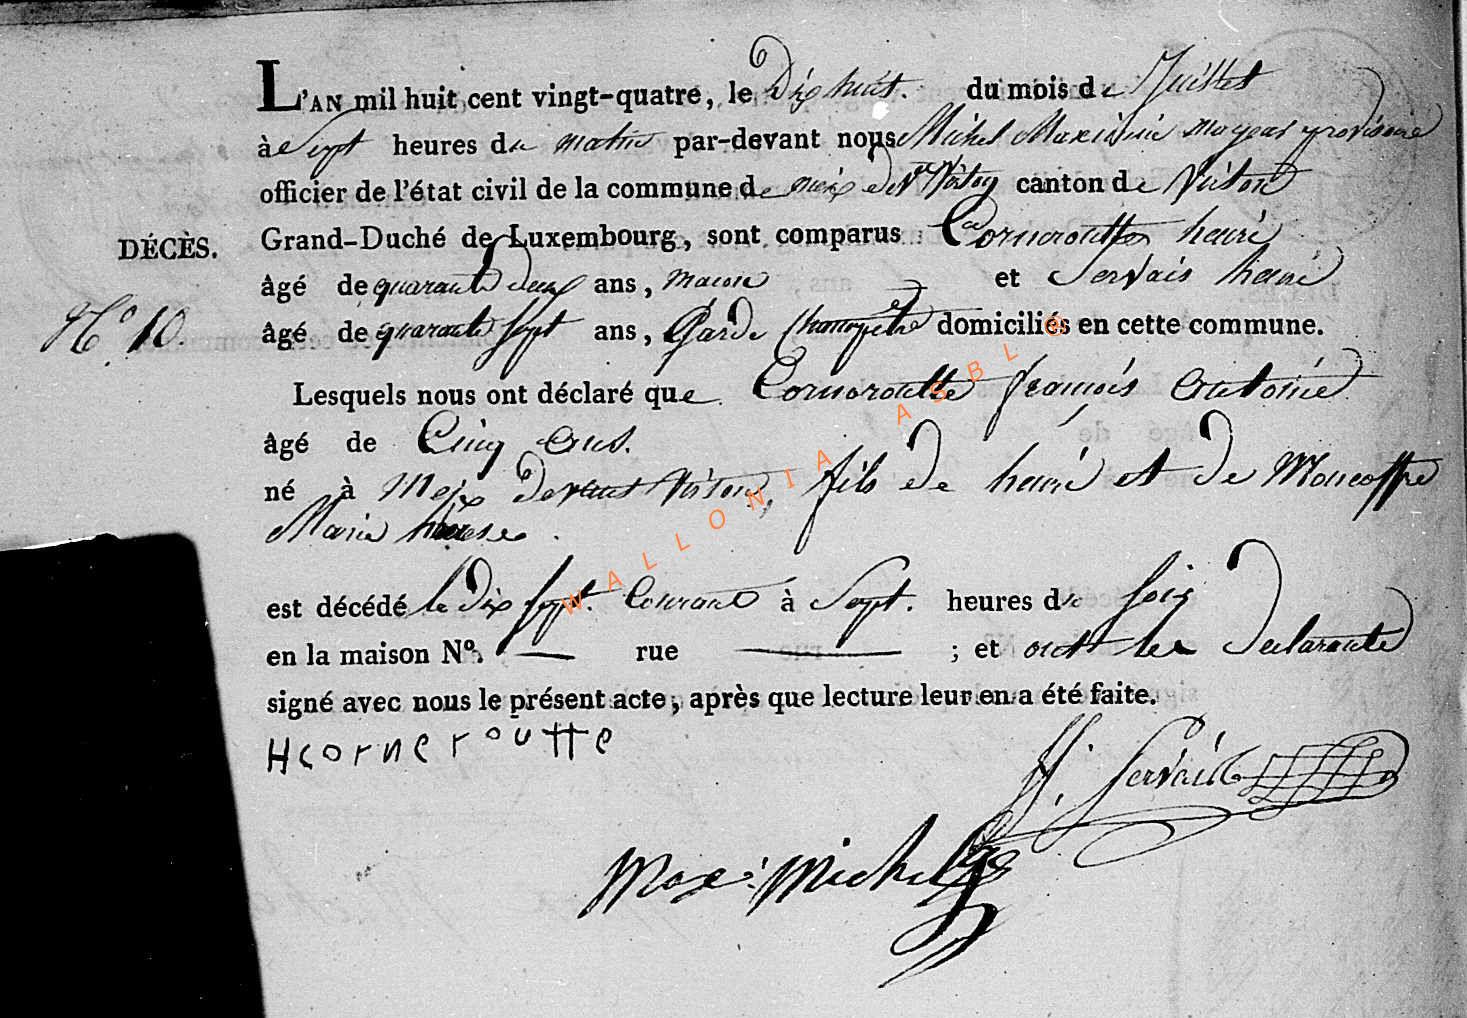 L'AN mil huit cent vingt-quatre, le Dix huit. du mois de Juillet
à Sept heures du matin par-devant nous Michel Maximin mayeur provisoire
officier de l'état civil de la commune de meix devt Virton canton de Virton
DÉCÈS.
Grand-Duché de Luxembourg, sont comparus Corneroutte henri
âgé de quarante deux ans, macon et Servais henri
N° 10.
âgé de quarante sept ans, Garde Champetre domiciliés en cette commune.
Lesquels nous ont déclaré que Corneroutte françois Antoine
âgé de Cinq Ans.
né à Meix Devant Virton, fils de henri et de Moncoffre
Marie .
est décédé le Dix sept. Courant à Sept. heures du soir
en la maison N°. — rue — ; et ont les Declarants
signé avec nous le présent acte, après que lecture leur en a été faite.
Hcorneroutte
H. Servais
Maxi: Michel
WALLONIA ASBL ©